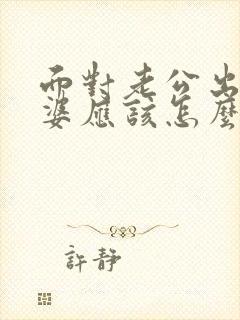 面對老公出
婆應該怎麼
許靜